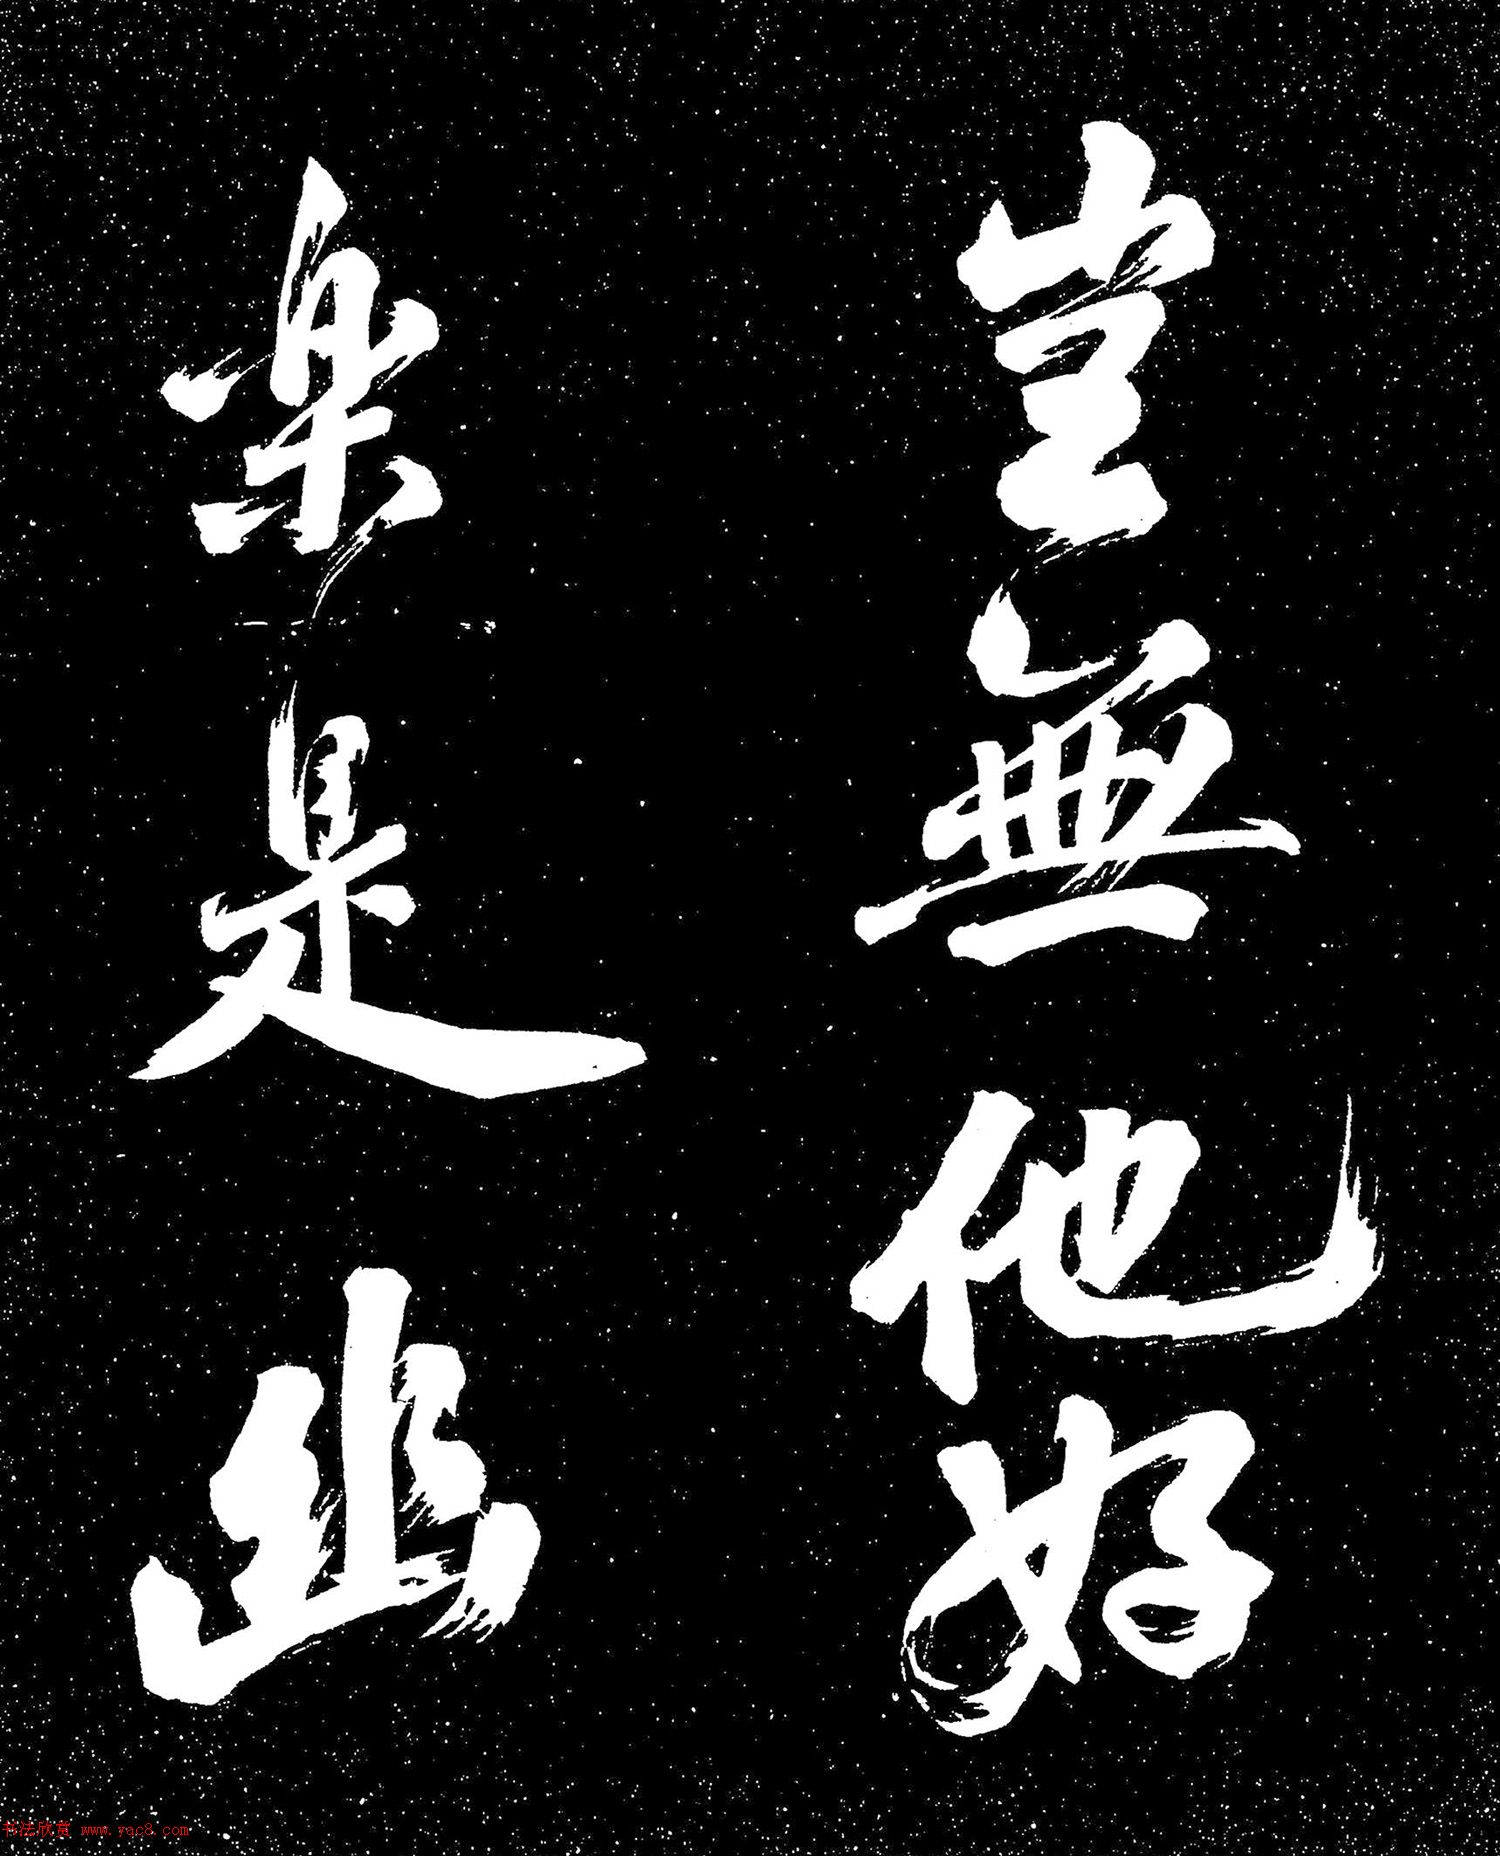 豈無他好
樂是幽
书法欣赏 www.yac8.com